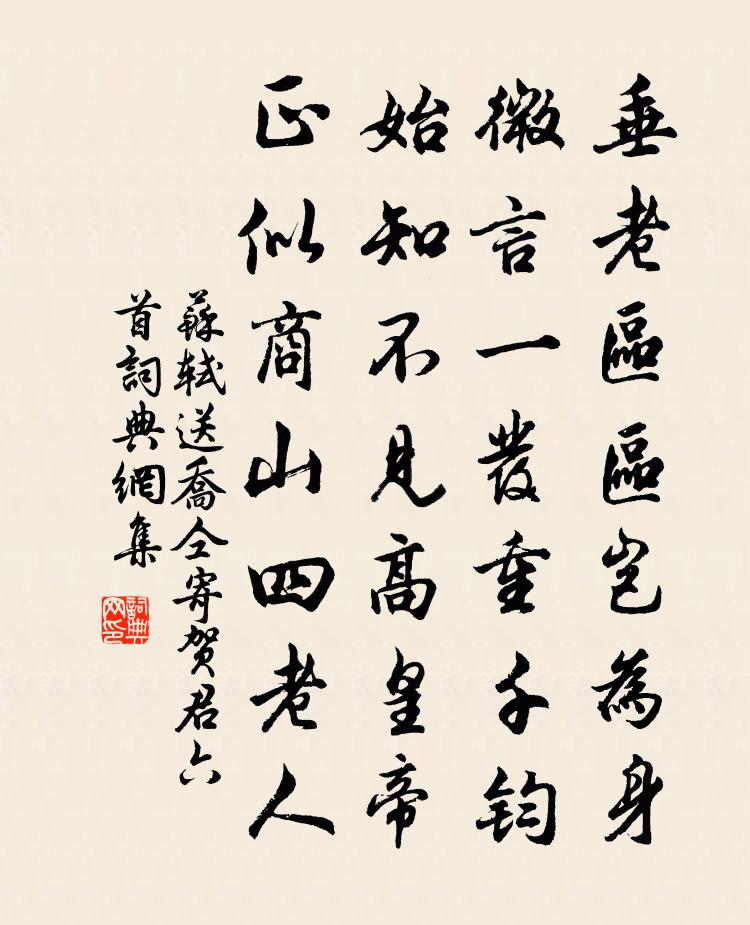 垂老區區豈為身
微言一發重千鈞
始知不見高皇帝
正似商山四老人
蘇軾送喬仝寄賀君六
首詞典網集
詞典网印